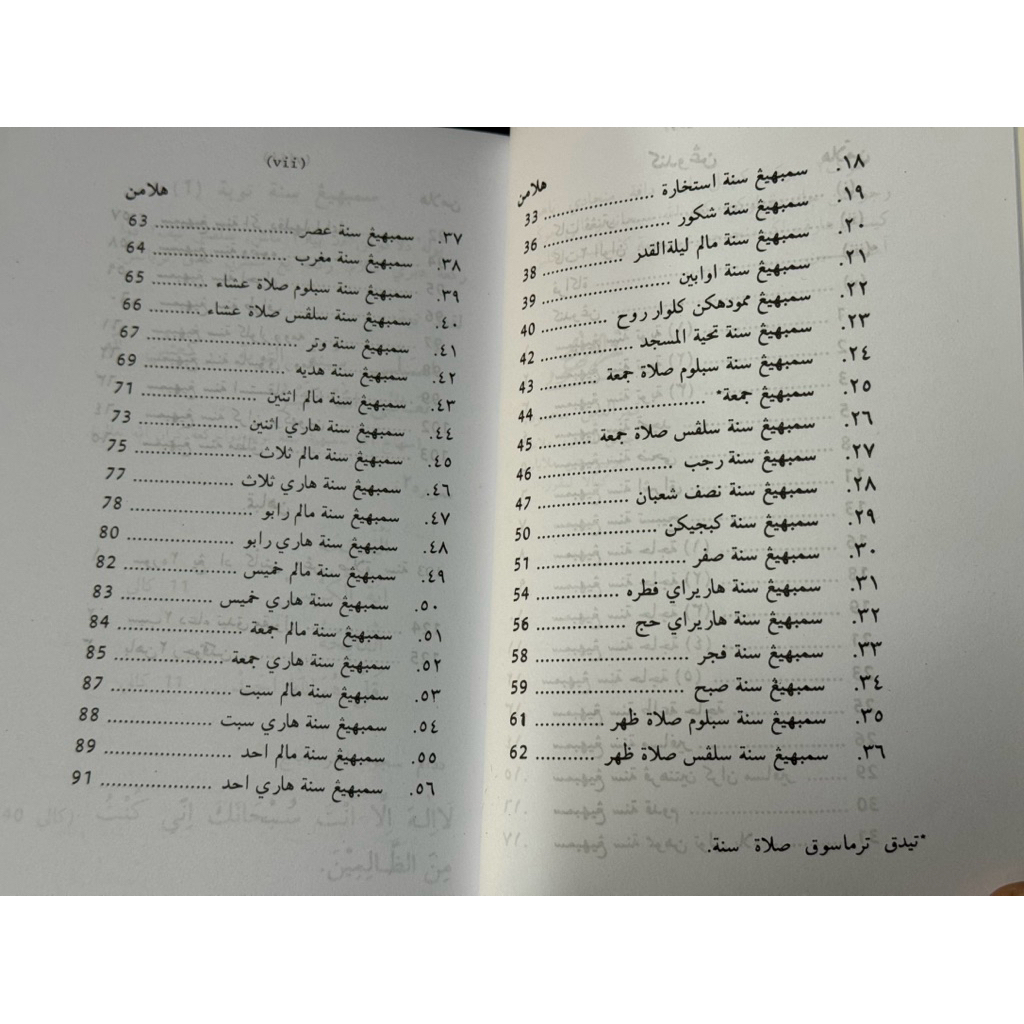 هلامن
١٨. سمبهيڠ سنة استخارة ..................... 33
١٩. سمبهيڠ سنة شكور ........................ 36
٢٠. سمبهيڠ سنة مالم ليلةالقدر ............... 38
٢١. سمبهيڠ سنة اوابين ...................... 39
٢٢. سمبهيڠ ممودهكن كلوار روح ............ 40
٢٣. سمبهيڠ سنة تحية المسجد ............... 42
٢٤. سمبهيڠ سنة سبلوم صلاة جمعة .......... 43
٢٥. سمبهيڠ جمعة* ........................... 44
٢٦. سمبهيڠ سنة سلڤس صلاة جمعة .......... 45
٢٧. سمبهيڠ سنة رجب ........................ 46
٢٨. سمبهيڠ سنة نصف شعبان ................. 47
٢٩. سمبهيڠ سنة كبجيكن ..................... 50
٣٠. سمبهيڠ سنة صفر ......................... 51
٣١. سمبهيڠ سنة هاريراي فطره .............. 54
٣٢. سمبهيڠ سنة هاريراي حج ................ 56
٣٣. سمبهيڠ سنة فجر ......................... 58
٣٤. سمبهيڠ سنة صبح ......................... 59
٣٥. سمبهيڠ سنة سبلوم صلاة ظهر ............ 61
٣٦. سمبهيڠ سنة سلڤس صلاة ظهر ............ 62
*تيدق ترماسوق صلاة سنة.
(vii)
هلامن
٣٧. سمبهيڠ سنة عصر ........................ 63
٣٨. سمبهيڠ سنة مغرب ....................... 64
٣٩. سمبهيڠ سنة سبلوم صلاة عشاء ........... 65
٤٠. سمبهيڠ سنة سلڤس صلاة عشاء ........... 66
٤١. سمبهيڠ سنة وتر .......................... 67
٤٢. سمبهيڠ سنة هديه ........................ 69
٤٣. سمبهيڠ سنة مالم اثنين ................... 71
٤٤. سمبهيڠ سنة هاري اثنين .................. 73
٤٥. سمبهيڠ سنة مالم ثلاث ................... 75
٤٦. سمبهيڠ سنة هاري ثلاث .................. 77
٤٧. سمبهيڠ سنة مالم رابو .................... 78
٤٨. سمبهيڠ سنة هاري رابو ................... 80
٤٩. سمبهيڠ سنة مالم خميس .................. 82
٥٠. سمبهيڠ سنة هاري خميس ................. 83
٥١. سمبهيڠ سنة مالم جمعة ................... 84
٥٢. سمبهيڠ سنة هاري جمعة .................. 85
٥٣. سمبهيڠ سنة مالم سبت .................... 87
٥٤. سمبهيڠ سنة هاري سبت ................... 88
٥٥. سمبهيڠ سنة مالم احد ..................... 89
٥٦. سمبهيڠ سنة هاري احد .................... 91